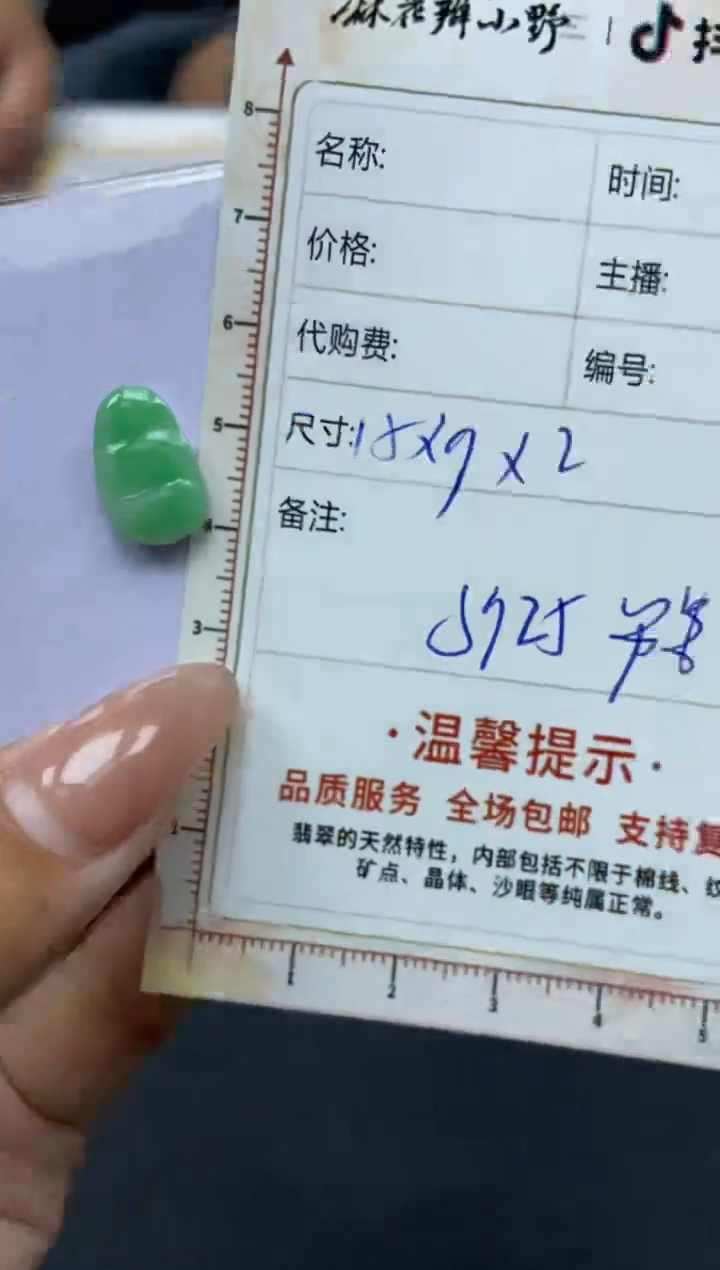 麻花辫小野 | 抖
8
名称:
时间:
7
价格:
主播:
6
代购费:
编号:
5
尺寸: 15x9x2
4
备注:
S925
3
·温馨提示·
品质服务 全场包邮 支持复
2
翡翠的天然特性，内部包括不限于棉线、纹
矿点、晶体、沙眼等纯属正常。
1 2 3 4 5